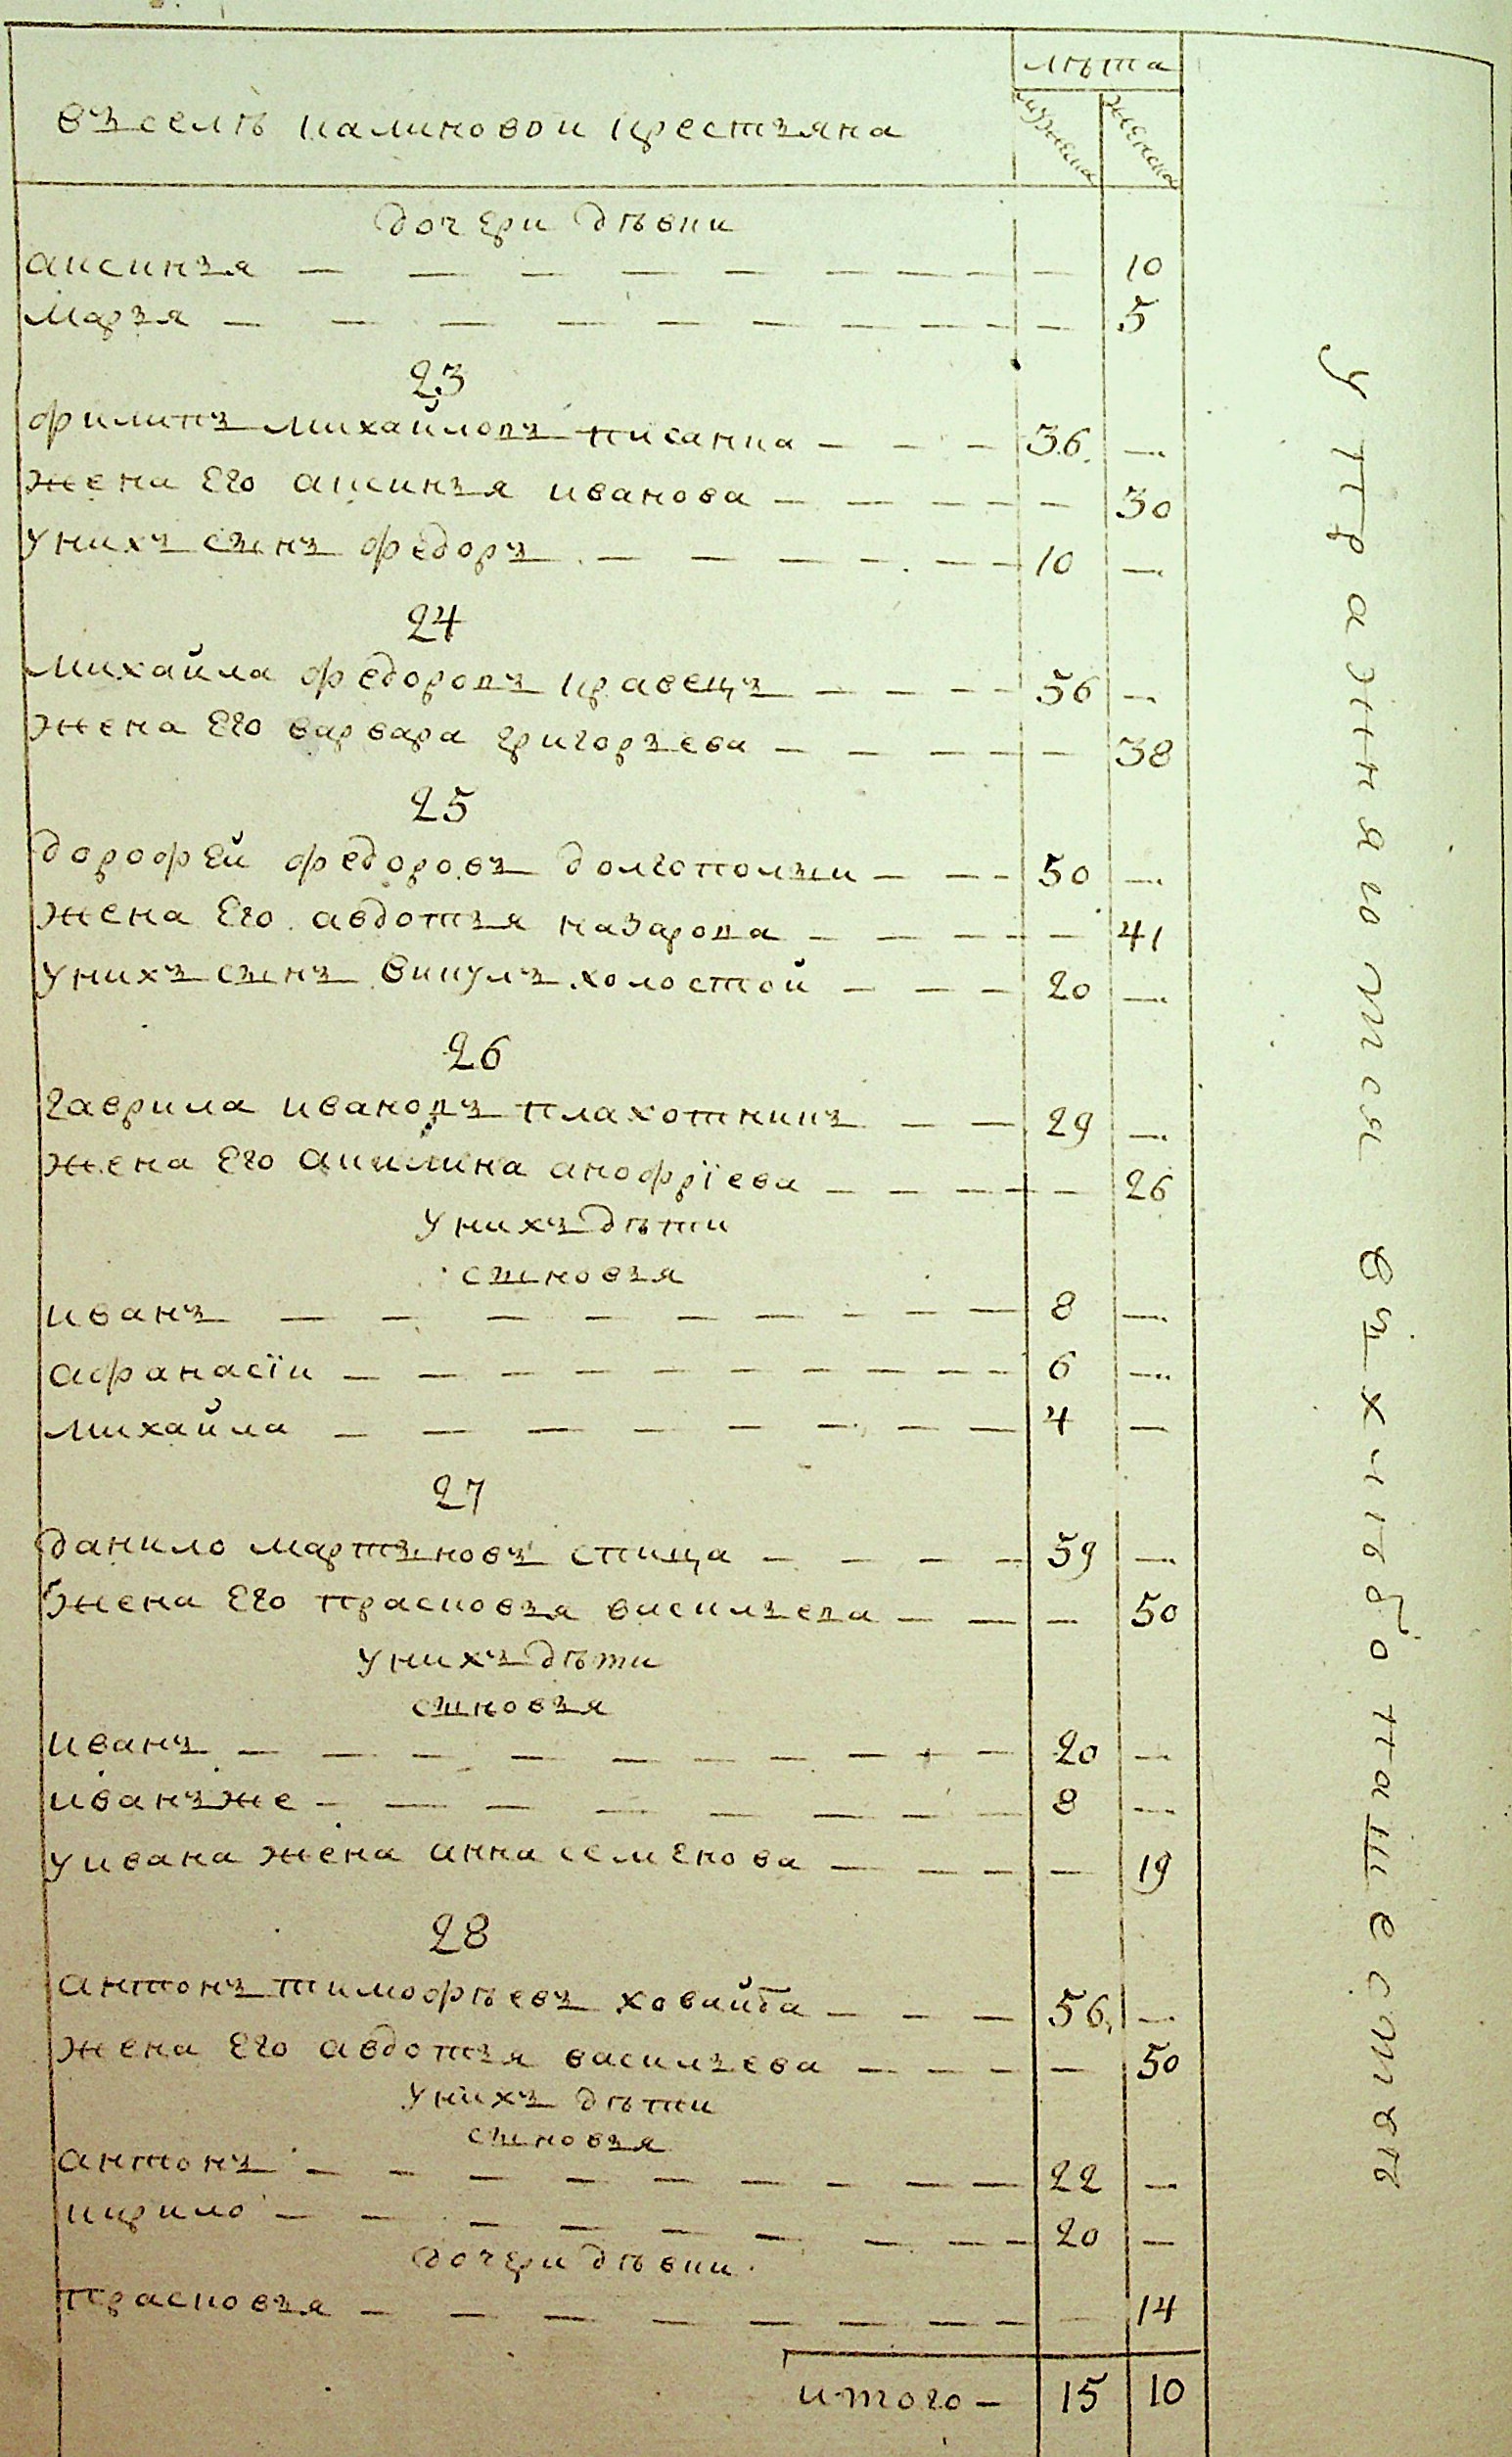 лѣта
въ селѣ калиновои крестьяна
мужеска
женска
дочери дѣвки
аксинья — — — — — — — — — 10
марья — — — — — — — — — 5
23
филипъ михайловъ писанка — — — 36 —
жена Его аксинья иванова — — — — — 30
у нихъ сынъ федоръ — — — — — — 10 —
24
михайла федоровъ кравецъ — — — — 56 —
жена Его варвара григорьева — — — — — 38
25
дорофей федоровъ долгополыи — — — 50 —
жена Его авдотья назарова — — — — — 41
у нихъ сынъ викулъ холостой — — — 20 —
26
гаврила ивановъ плахотникъ — — 29 —
жена Его акилина анофрїева — — — — — 26
у нихъ дѣти
сыновья
иванъ — — — — — — — — 8 —
афанасїи — — — — — — — — — 6 —
михайла — — — — — — — — 4 —
27
данило мартыновъ спица — — — — 59 —
жена Его прасковья васильева — — — 50
у нихъ дѣти
сыновья
иванъ — — — — — — — — — 20 —
иванъ же — — — — — — — — 8 —
у ивана жена анна семенова — — — — — 19
28
антонъ тимофѣевъ ховайба — — — 56 —
жена Его авдотья васильева — — — — — 50
у нихъ дѣти
сыновья
антонъ — — — — — — — — 22 —
кирило — — — — — — — — — 20 —
дочери дѣвки
прасковья — — — — — — — — — 14
итого — 15 10
упражняютса въ хлѣбопашествѣ